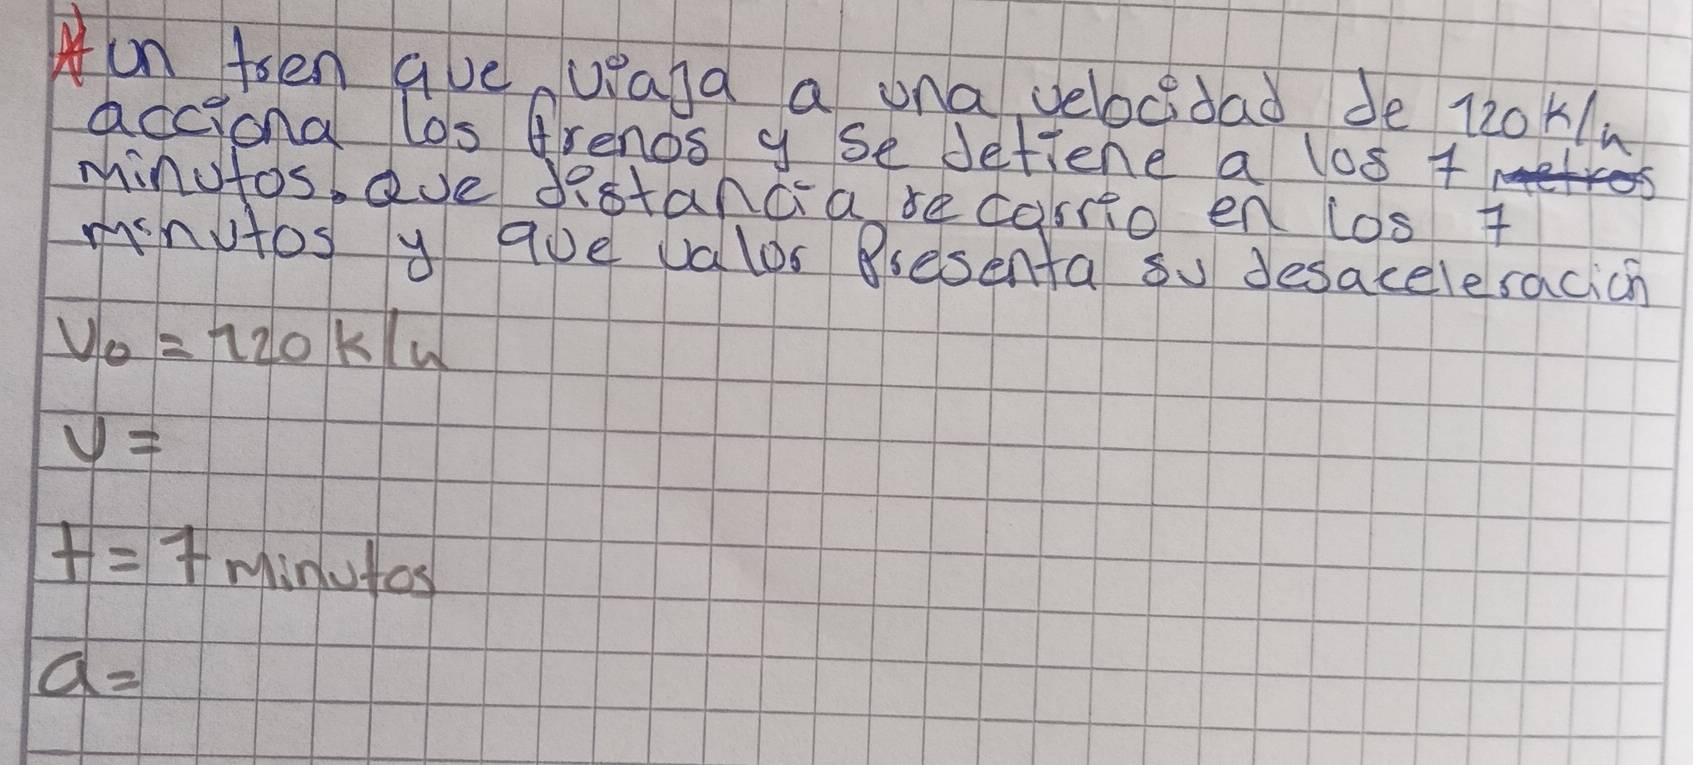 un tren que viaja a una velocidad de 120 k/h
acciona los frenos y se detiene a los 7 metros
minutos. que distancia recorrio en los 7
minutos y que valor Presenta su desaceleración
Vo = 120 k/h
V =
t = 7 minutos
a =